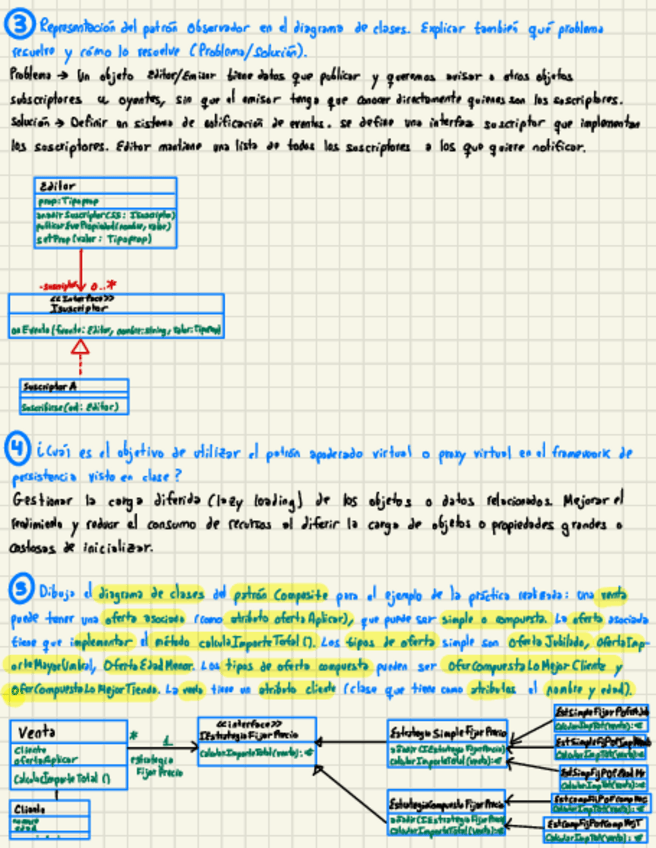 3 Representación del patrón observador en el diagrama de clases. Explicar también qué problema
resuelve y cómo lo resuelve (Problema/Solución).
Problema → Un objeto Editor/Emisor tiene datos que publicar y queremos avisar a otros objetos
subscriptores u oyentes, sin que el emisor tenga que conocer directamente quienes son los suscriptores.
Solución → Definir un sistema de notificación de eventos. se define una interfaz suscriptor que implementan
los suscriptores. Editor mantiene una lista de todos los suscriptores a los que quiere notificar.
Editor
prop: Tipoprop
añadirSuscriptor(SS: ISuscriptor)
publicarEvePropiedad(nombre, valor)
setProp(valor: Tipoprop)
-suscriptor 0..*
<<Interface>>
Isuscriptor
onEvento(fuente: Editor, nombre: string, valor: Tipoprop)
Suscriptor A
Suscribirse(ed: Editor)
4 ¿Cuál es el objetivo de utilizar el patrón apoderado virtual o proxy virtual en el framework de
persistencia visto en clase?
Gestionar la carga diferida (lazy loading) de los objetos o datos relacionados. Mejorar el
rendimiento y reducir el consumo de recursos al diferir la carga de objetos o propiedades grandes o
costosas de inicializar.
5 Dibuja el diagrama de clases del patrón Composite para el ejemplo de la práctica realizada: una venta
puede tener una oferta asociada (como atributo ofertaAplicar), que puede ser simple o compuesta. La oferta asociada
tiene que implementar el método calculaImporteTotal(). Los tipos de oferta simple son OfertaJubilado, OfertaImp-
orteMayorUmbral, OfertaEdadMenor. Los tipos de oferta compuesta pueden ser OferCompuestaLoMejorCliente y
OferCompuestaLoMejorTienda. La venta tiene un atributo cliente (clase que tiene como atributos el nombre y edad).
Venta
Cliente
ofertaAplicar
CalculaImporteTotal()
* 1
estrategia
Fijar Precio
<<interface>>
IEstrategiaFijarPrecio
CalcularImporteTotal(venta):
Estrategia Simple Fijar Precio
añadir(IEstrategia FijarPrecio)
CalcularImporteTotal(venta):
EstrategiaCompuesta Fijar Precio
añadir(IEstrategia FijarPrecio)
CalcularImporteTotal(venta):
Cliente
nombre
edad